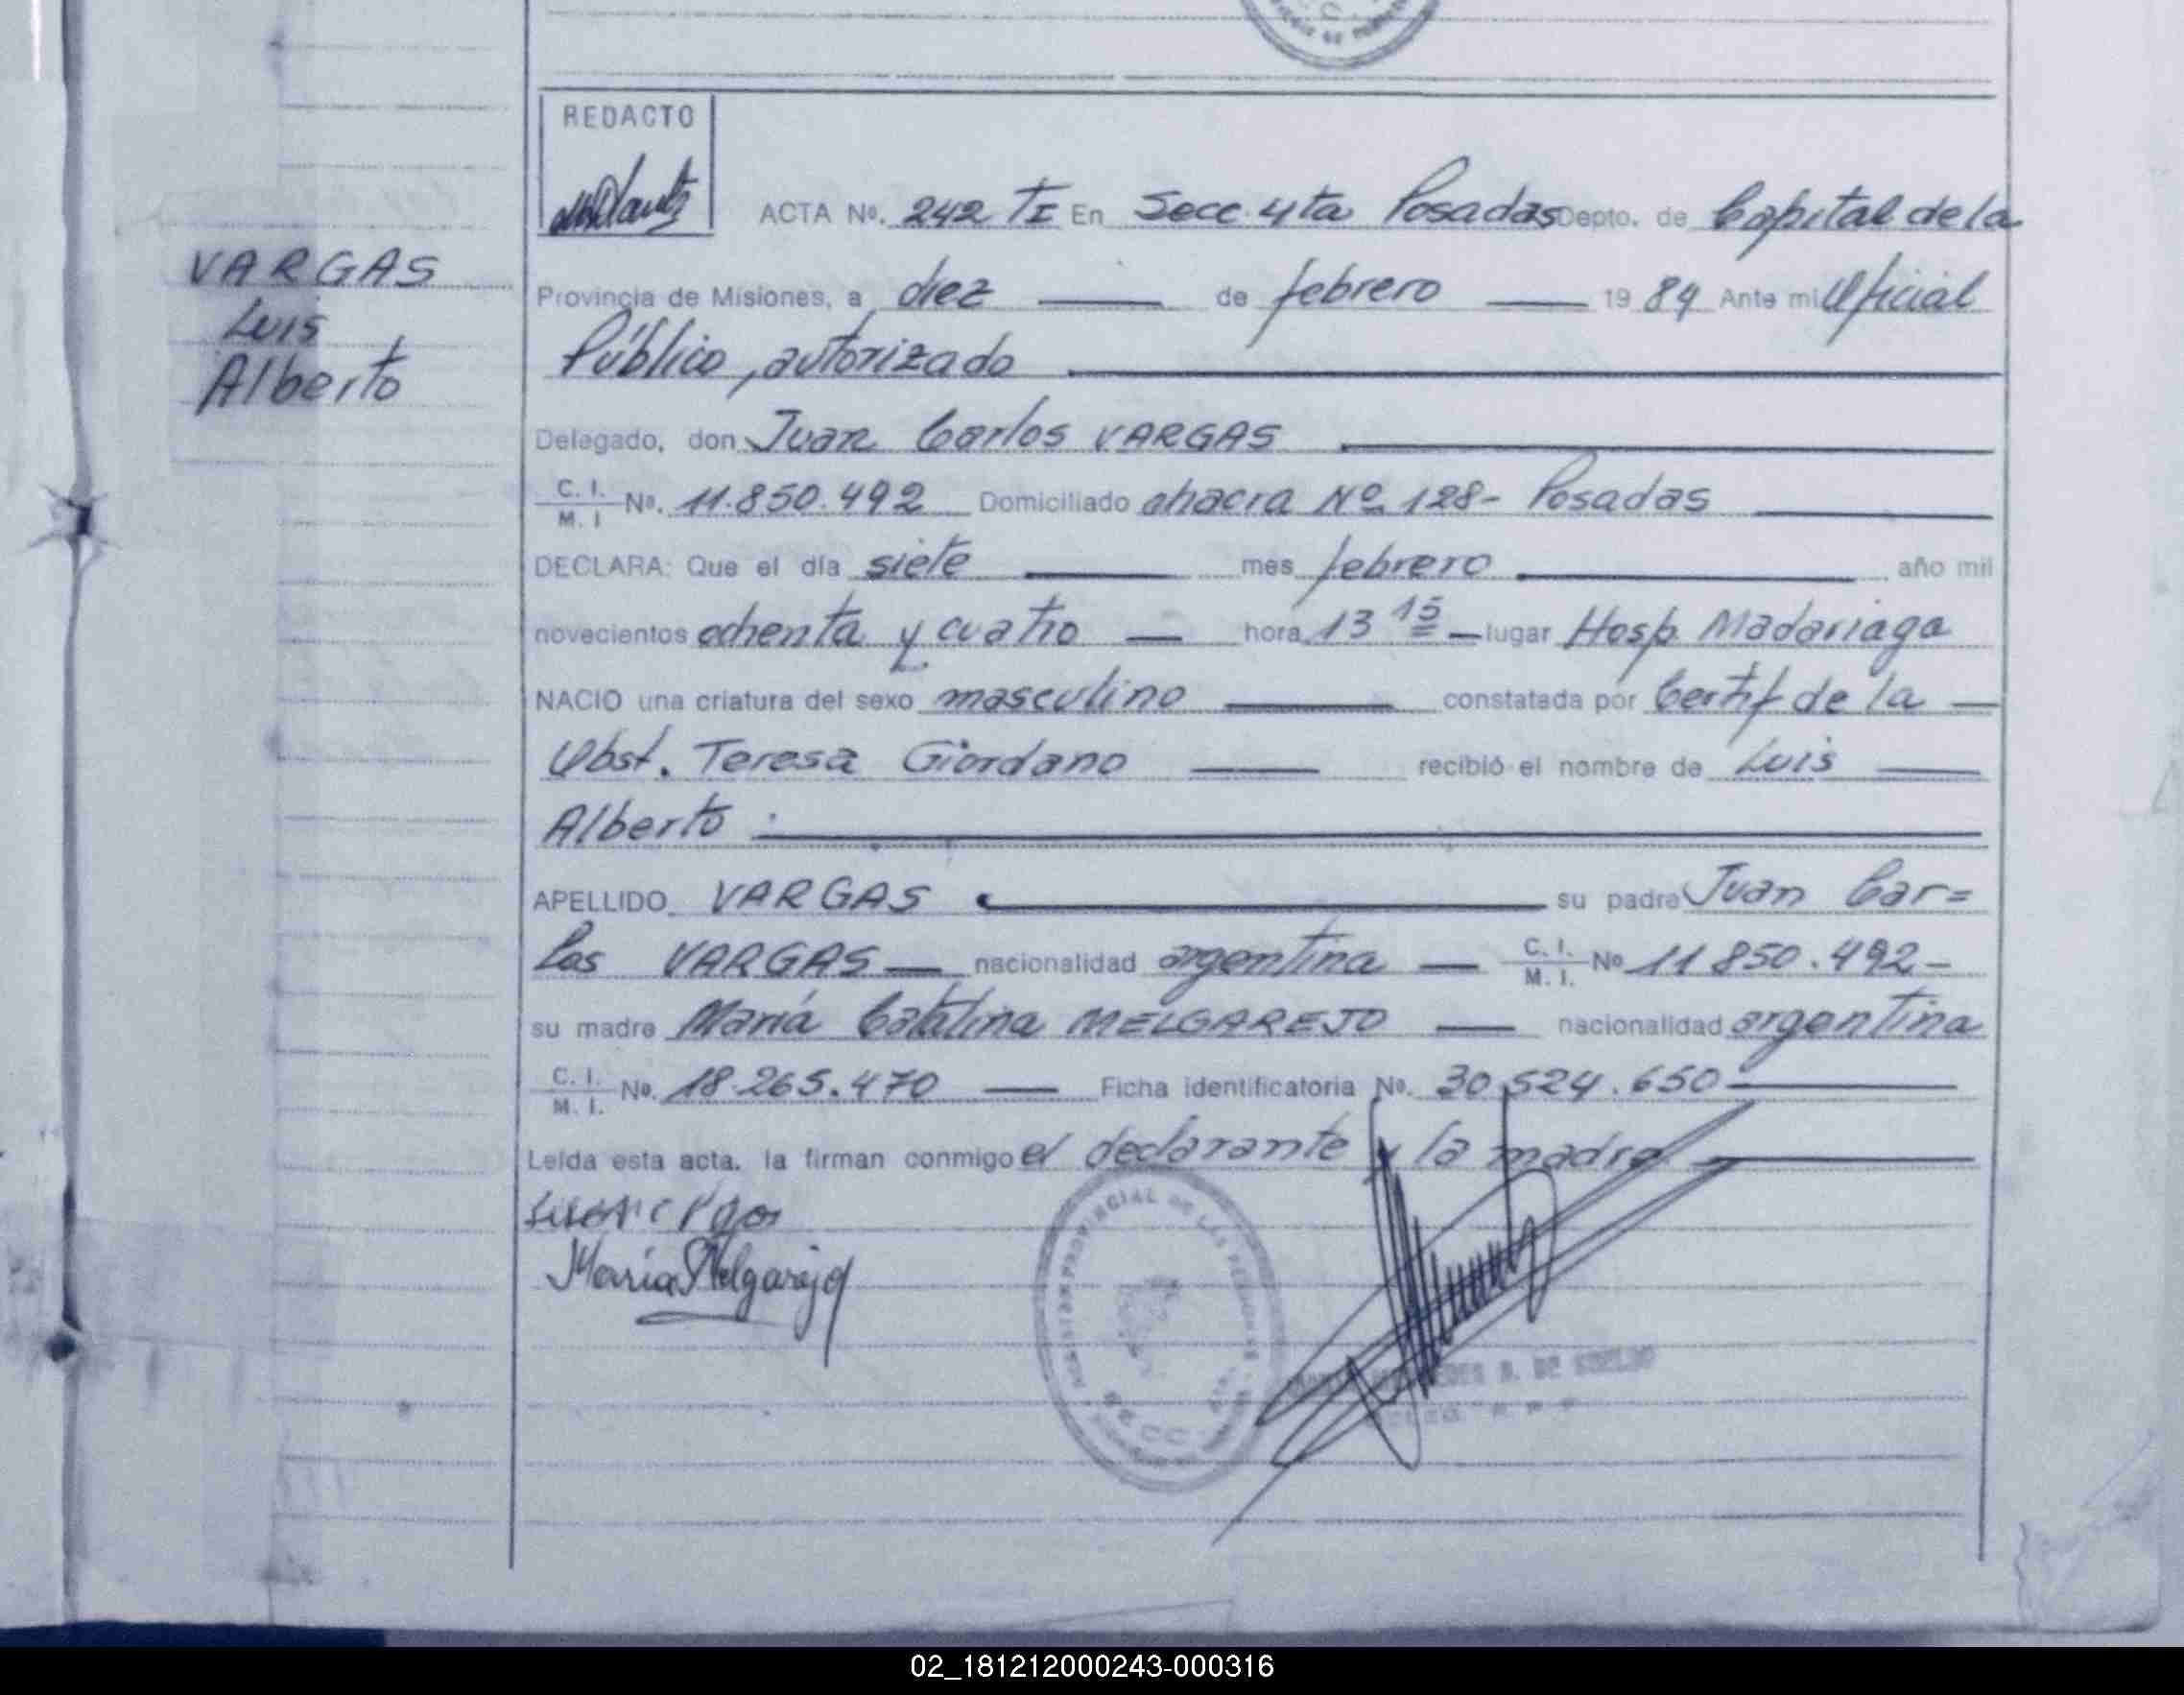 REDACTO
ACTA Nº. 242 TI En Secc. 4ta Posadas Depto. de Capital de la
VARGAS
Luis
Alberto
Provincia de Misiones, a diez de febrero 1984 Ante mi Oficial
Público, autorizado
Delegado, don Juan Carlos VARGAS
C. I. M. I Nº. 11.850.492 Domiciliado chacra Nº 128- Posadas
DECLARA: Que el día siete mes febrero año mil
novecientos ochenta y cuatro hora 13 15 lugar Hosp. Madariaga
NACIO una criatura del sexo masculino constatada por Certif de la
Obst. Teresa Giordano recibió el nombre de Luis
Alberto
APELLIDO VARGAS su padre Juan Car=
los VARGAS nacionalidad argentina C. I. M. I. Nº 11 850.492-
su madre María Catalina MELGAREJO nacionalidad argentina
C. I. M. I. Nº. 18.265.470 Ficha identificatoria Nº. 30.524.650
Leída esta acta, la firman conmigo el declarante y la madre
María Melgarejo
REGISTRO PROVINCIAL DE LAS PERSONAS
02_181212000243-000316